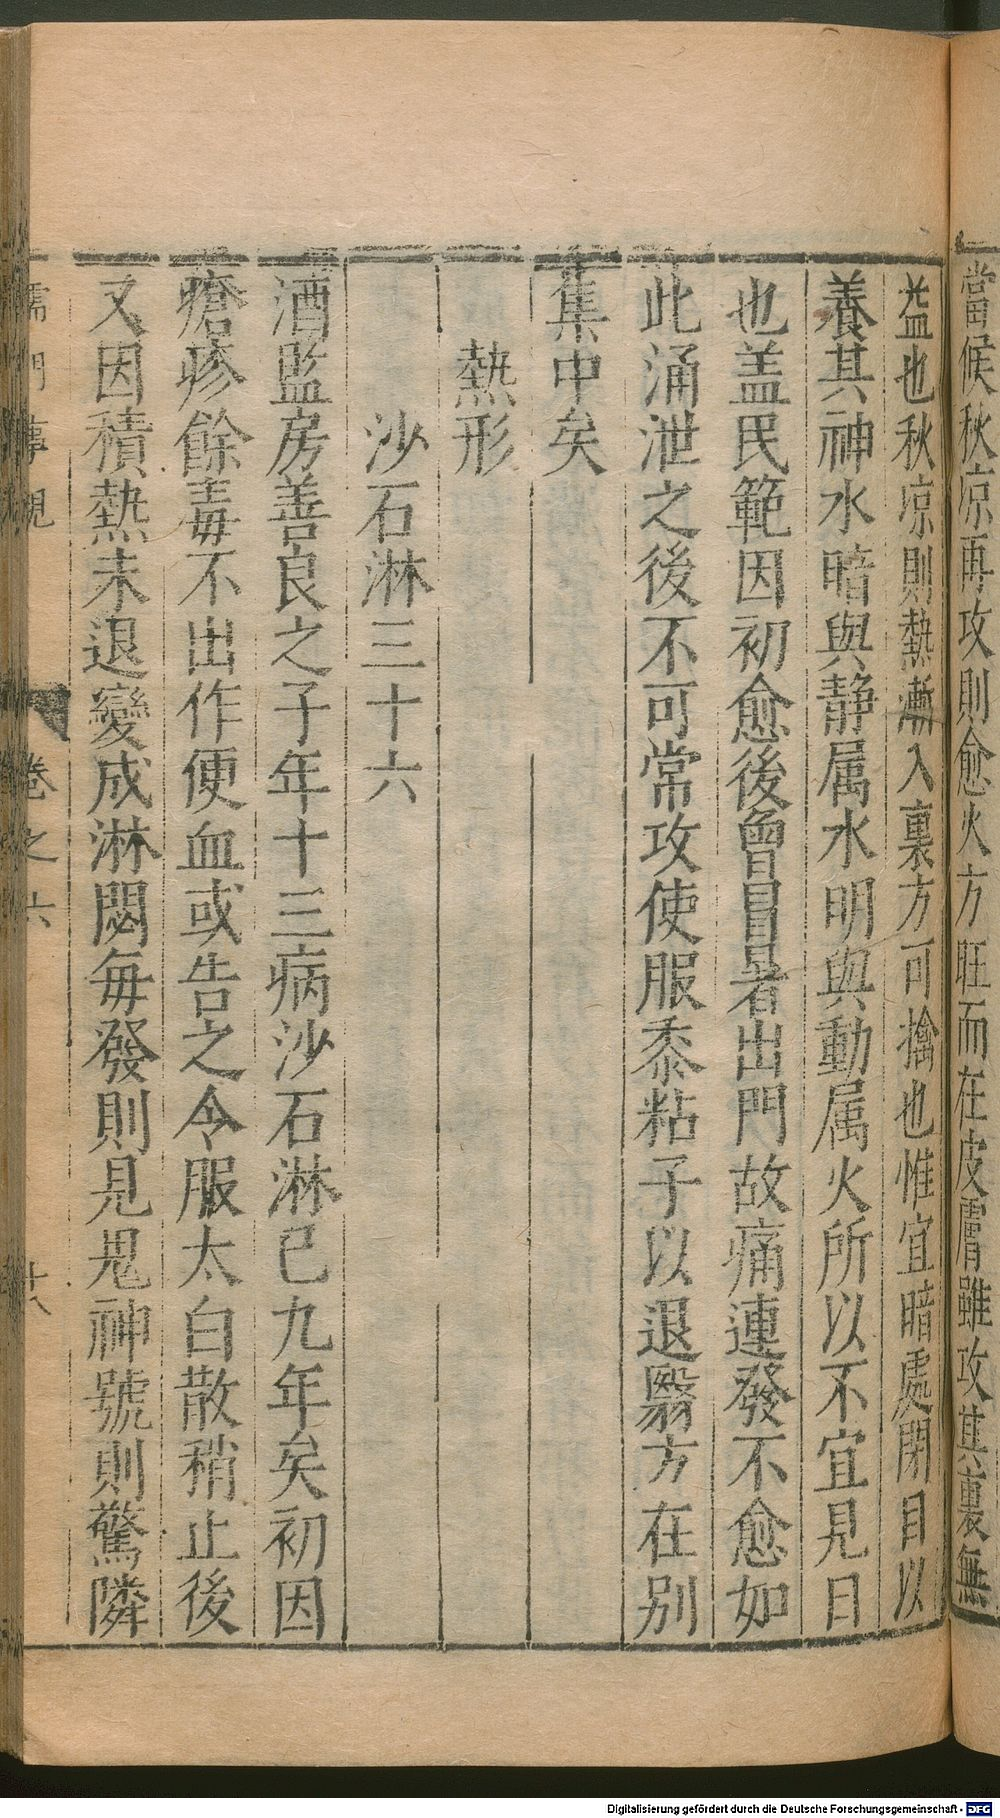 當候秋凉再攻則愈火方旺而在皮膚雖攻其裏無
益也秋凉則熱漸入裏方可擒也惟宜暗處閉目以
養其神水暗與静属水明與動属火所以不宜見日
也盖民範因初愈後曾冒暑出門故痛連發不愈如
此涌泄之後不可常攻使服黍粘子以退翳方在别
集中矣
熱形
沙石淋三十六
酒監房善良之子年十三病沙石淋已九年矣初因
瘡疹餘毒不出作便血或告之令服太白散稍止後
又因積熱未退變成淋閟每發則見鬼神號則驚隣
儒門事親 卷之六 十八
Digitalisierung gefördert durch die Deutsche Forschungsgemeinschaft - DFG